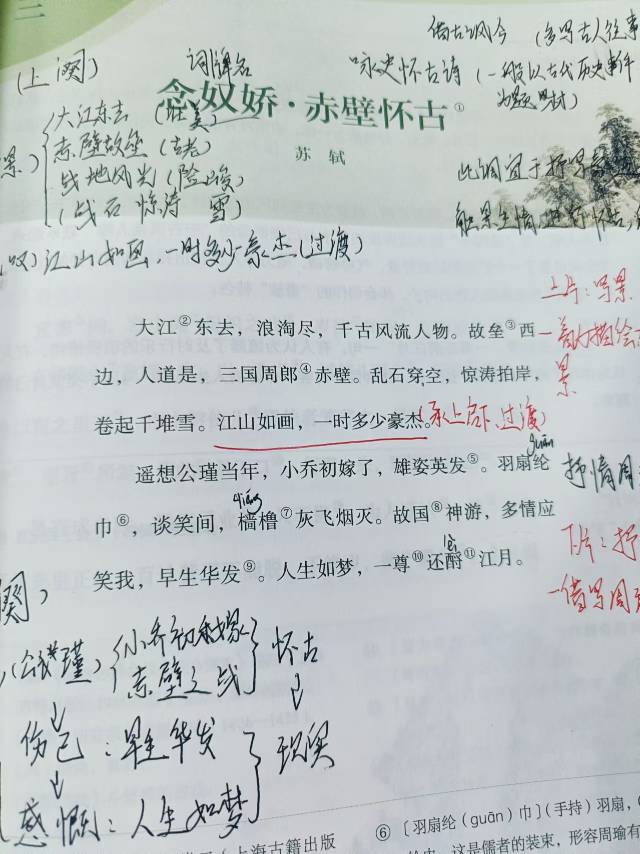 三
借古讽今 (多写古人往事
(上阕) 词牌名 咏史怀古诗 (一般以古代历史事件
为题材)
念奴娇·赤壁怀古①
苏轼
景) 大江东去 (壮美)
赤壁故垒 (古老)
战地风光 (险峻)
(战石 惊涛 雪)
江山如画,一时多少豪杰(过渡)
此词宜于抒写
上片:写景
大江②东去,浪淘尽,千古风流人物。故垒③西
边,人道是,三国周郎④赤壁。乱石穿空,惊涛拍岸,
景
卷起千堆雪。江山如画,一时多少豪杰。(承上启下、过渡)
guān
遥想公瑾当年,小乔初嫁了,雄姿英发⑤。羽扇纶
抒情周
qiáng
巾⑥,谈笑间,樯橹⑦灰飞烟灭。故国⑧神游,多情应
下片:抒
lèi
笑我,早生华发⑨。人生如梦,一尊⑩还酹⑪江月。
一借写周
阕)
瑾) 小乔初嫁 怀古
赤壁之战
伤己:早生华发 现实
感慨:人生如梦
(上海古籍出版
⑥〔羽扇纶(guān)巾〕(手持)羽扇,
这是儒者的装束,形容周瑜有